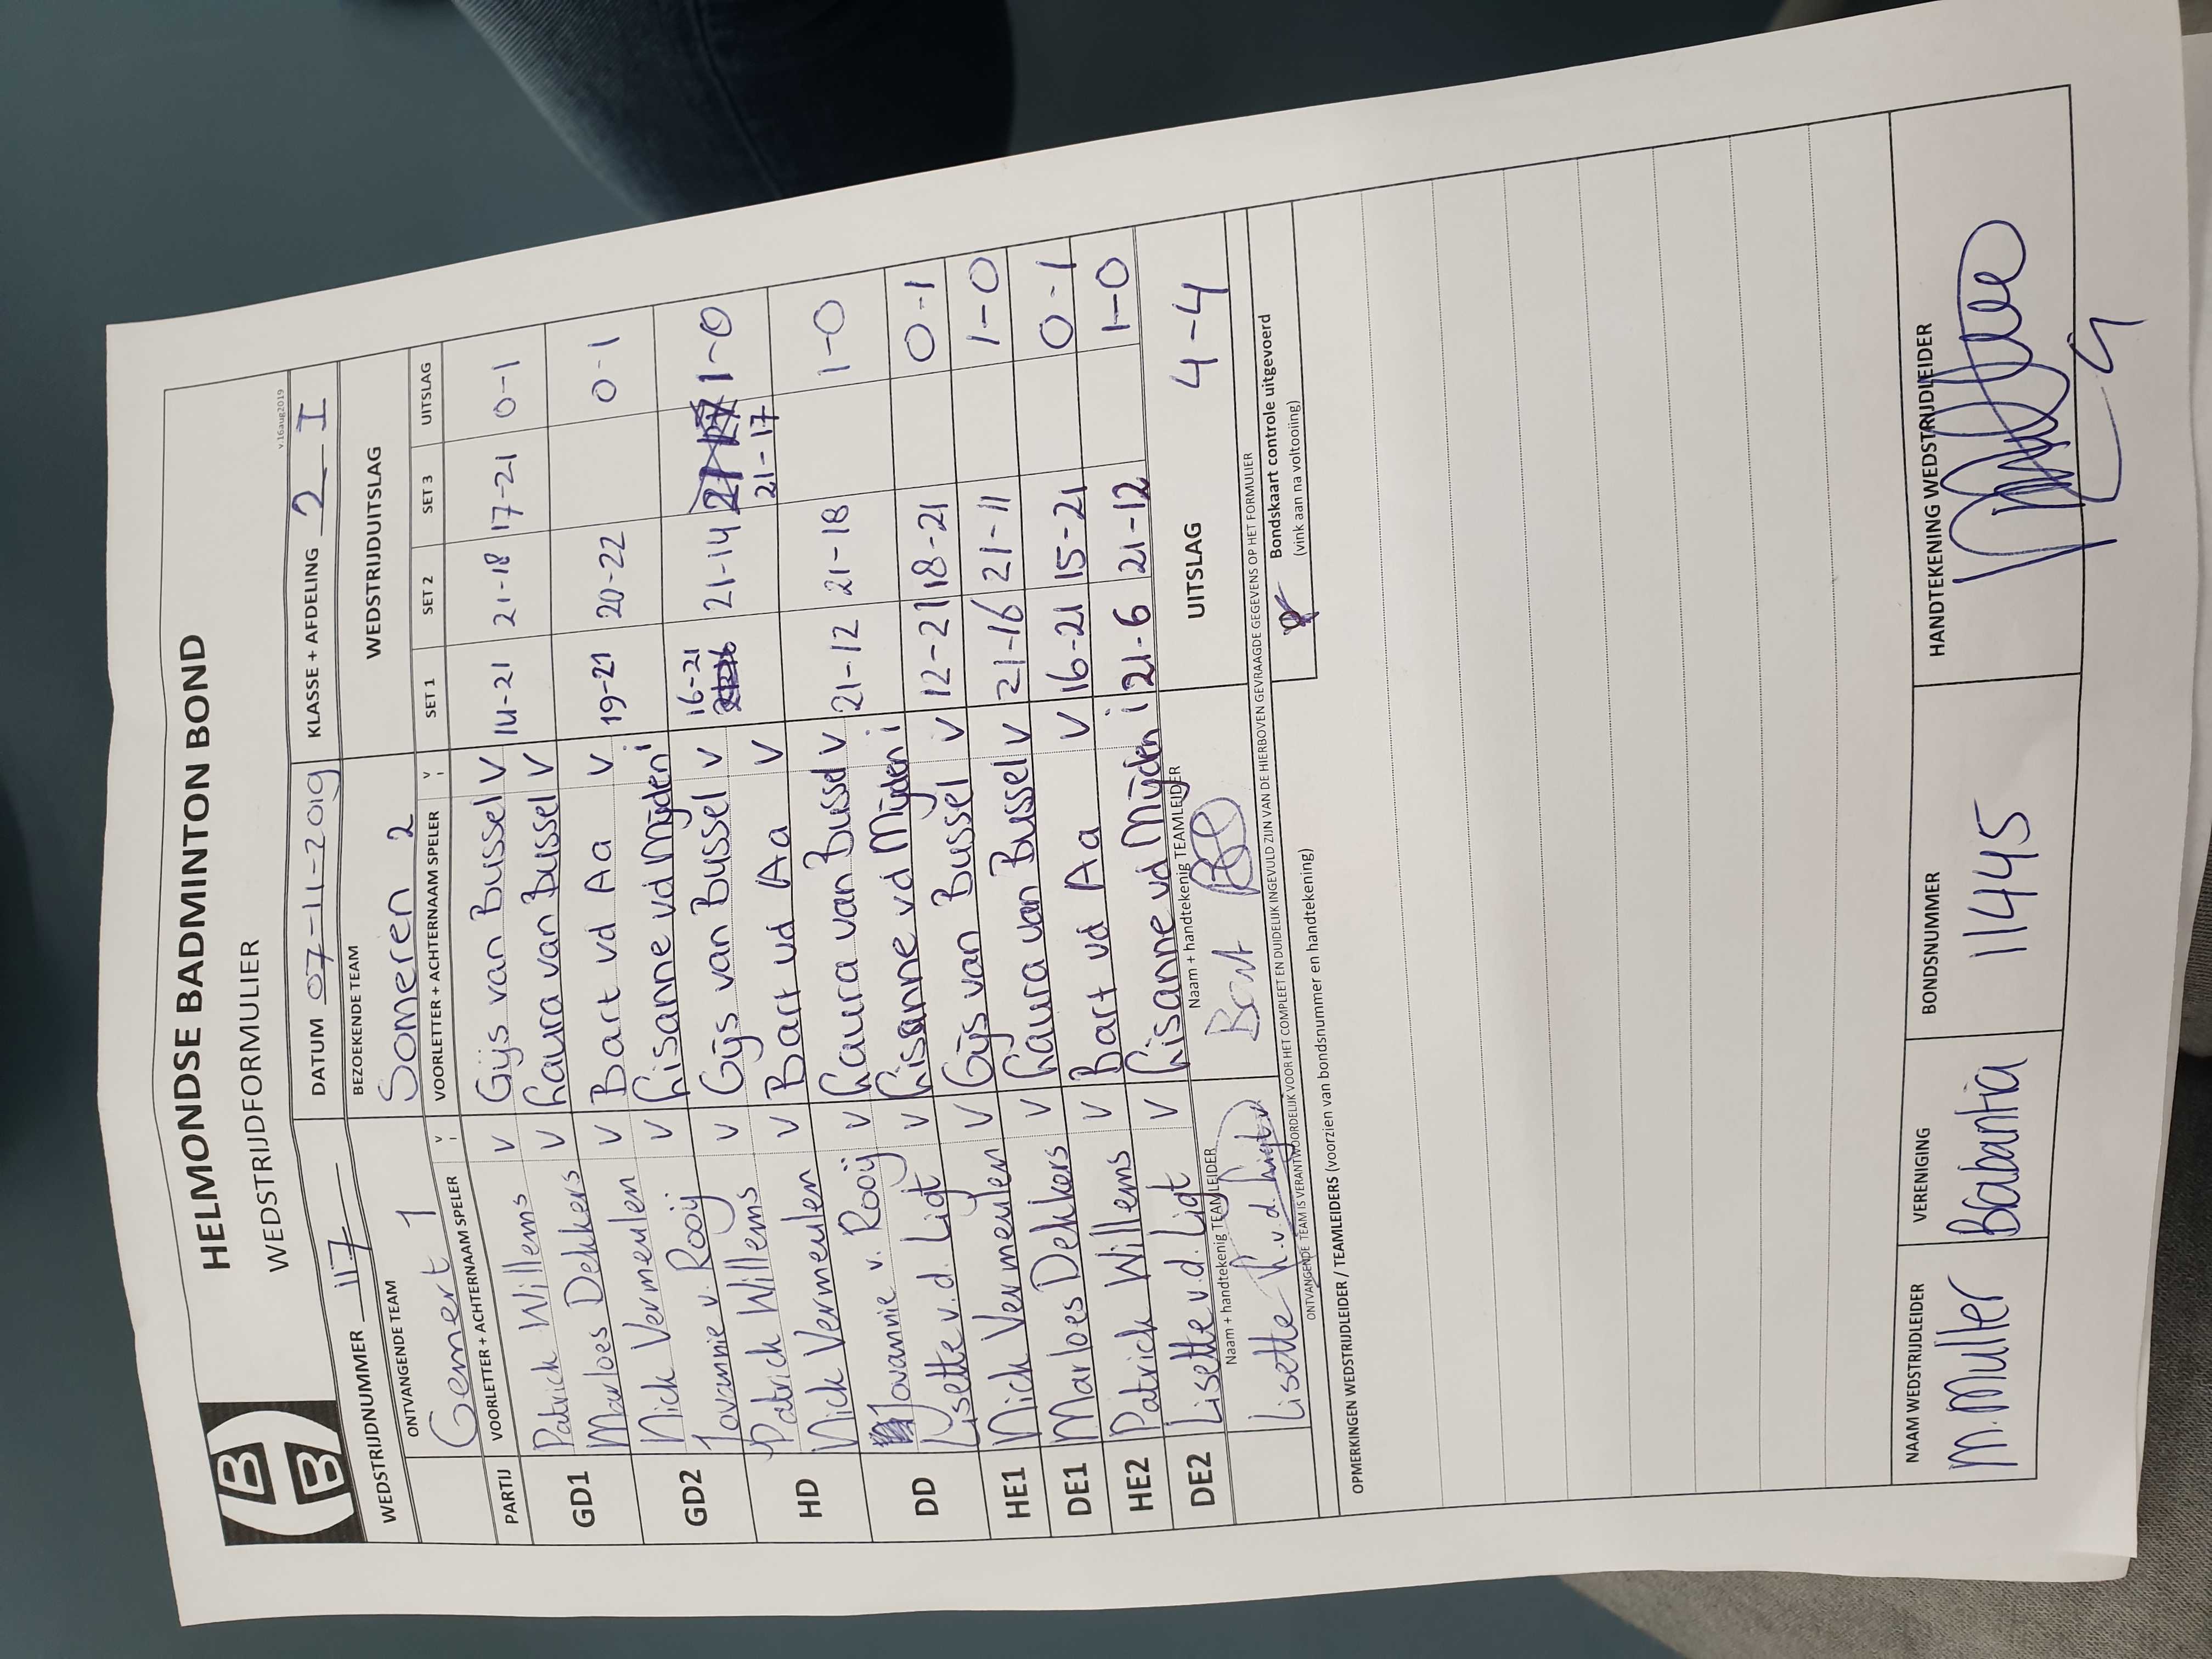 HELMONDSE BADMINTON BOND
WEDSTRIJDFORMULIER
v.16aug2019
WEDSTRIJDNUMMER 117 DATUM 07-11-2019 KLASSE + AFDELING 2 I
ONTVANGENDE TEAM BEZOEKENDE TEAM WEDSTRIJDUITSLAG
Gemert 1 Someren 2
PARTIJ VOORLETTER + ACHTERNAAM SPELER V i VOORLETTER + ACHTERNAAM SPELER V i SET 1 SET 2 SET 3 UITSLAG
GD1 Patrick Willems V Gijs van Bussel V 14-21 21-18 17-21 0-1
Marloes Dekkers V Laura van Bussel V
GD2 Nick Vermeulen V Bart vd Aa V 19-21 20-22 0-1
Jovannie v. Rooij V Lisanne vd Mijden i
HD Patrick Willems V Gijs van Bussel V 16-21 21-14 21-17 1-0
Nick Vermeulen V Bart vd Aa V
DD Jovannie v. Rooij V Laura van Bussel V 21-12 21-18 1-0
Lisette v.d. Ligt V Lisanne vd Mijden i
HE1 Nick Vermeulen V Gijs van Bussel V 12-21 18-21 0-1
DE1 Marloes Dekkers V Laura van Bussel V 21-16 21-11 1-0
HE2 Patrick Willems V Bart vd Aa V 16-21 15-21 0-1
DE2 Lisette v.d. Ligt V Lisanne vd Mijden i 21-6 21-12 1-0
Naam + handtekenig TEAMLEIDER Naam + handtekenig TEAMLEIDER UITSLAG 4-4
Lisette L.v.d. Ligt Bart
ONTVANGENDE TEAM IS VERANTWOORDELIJK VOOR HET COMPLEET EN DUIDELIJK INGEVULD ZIJN VAN DE HIERBOVEN GEVRAAGDE GEGEVENS OP HET FORMULIER
Bondskaart controle uitgevoerd
(vink aan na voltooiing)
OPMERKINGEN WEDSTRIJDLEIDER / TEAMLEIDERS (voorzien van bondsnummer en handtekening)
NAAM WEDSTRIJDLEIDER VERENIGING BONDSNUMMER HANDTEKENING WEDSTRIJDLEIDER
M. Muller Brabantia 11445